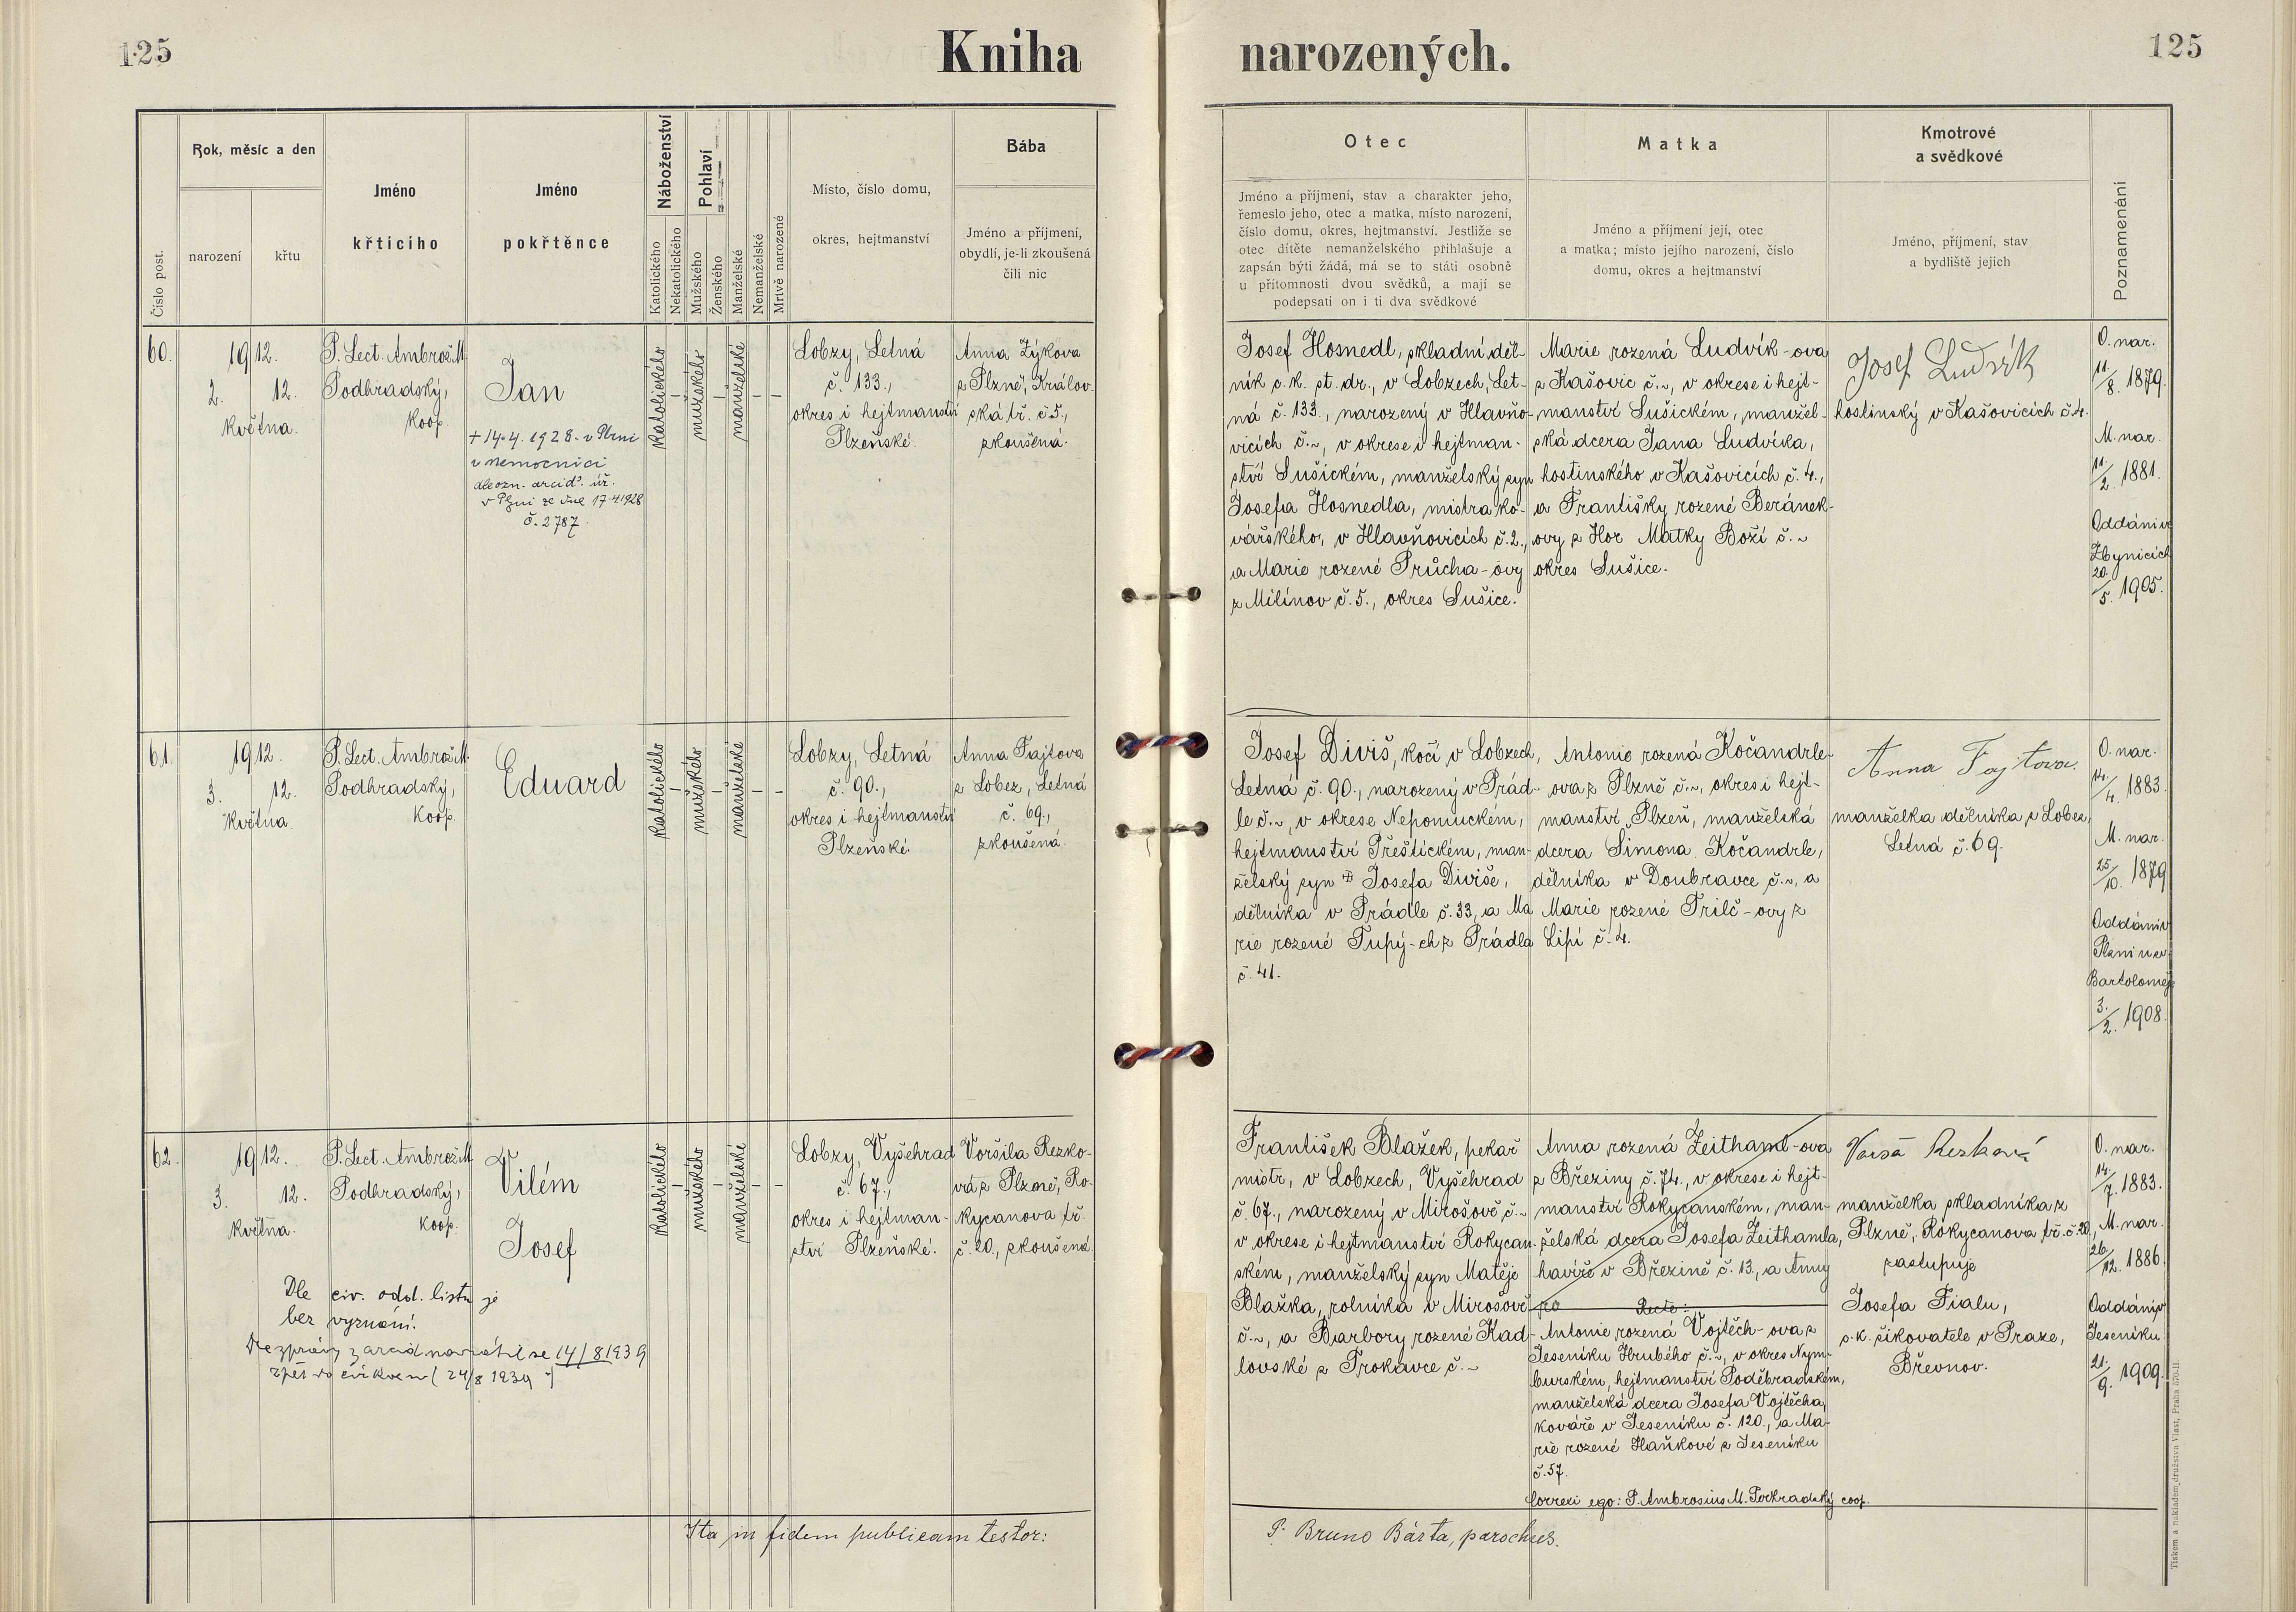 125
Kniha narozených.
125
Číslo post.
Rok, měsíc a den
narození
křtu
Jméno
křtícího
Jméno
pokřtěnce
Náboženství
Katolického
Nekatolického
Pohlaví
Mužského
Ženského
Manželské
Nemanželské
Mrtvě narozené
Místo, číslo domu,
okres, hejtmanství
Bába
Jméno a příjmení,
obydlí, je-li zkoušená
čili nic
Otec
Jméno a příjmení, stav a charakter jeho,
řemeslo jeho, otec a matka, místo narození,
číslo domu, okres, hejtmanství. Jestliže se
otec dítěte nemanželského přihlašuje a
zapsán býti žádá, má se to státi osobně
u přítomnosti dvou svědků, a mají se
podepsati on i ti dva svědkové
Matka
Jméno a příjmení její, otec
a matka; místo jejího narození, číslo
domu, okres a hejtmanství
Kmotrové
a svědkové
Jméno, příjmení, stav
a bydliště jejich
Poznamenání
60.
1912.
2. 12.
května.
P. Lect. Ambrož M.
Podhradský,
koop.
Jan
+ 14.4. 1928. v Plzni
v nemocnici
dle ozn. arcid. úř.
v Plzni ze dne 17.4.1928
č. 2787.
katolického
–
mužského
–
manželské
–
–
Lobzy, Letná
č. 133.,
okres i hejtmanství
Plzeňské.
Anna Zýkova
z Plzně, Králov-
ská tř. č. 5.,
zkoušená.
Josef Hosnedl, skladní děl-
ník c. k. st. dr., v Lobzech, Let-
ná č. 133., narozený v Hlavňo-
vicích č. ~, v okrese i hejtman-
ství Sušickém, manželský syn
Josefa Hosnedla, mistra ko-
vářského, v Hlavňovicích č. 2.,
a Marie rozené Průcha-ovy
z Milínov č. 5., okres Sušice.
Marie rozená Ludvík-ova
z Kašovic č. ~, v okrese i hejt-
manství Sušickém, manžel-
ská dcera Jana Ludvíka,
hostinského v Kašovicích č. 4.,
a Františky rozené Beránek-
ovy z Hor Matky Boží č. ~
okres Sušice.
Josef Ludvík
hostinský v Kašovicích č. 4.
O. nar.
11./8. 1879.
M. nar.
11./2. 1881.
Oddáni v
Zbynicích
20./5. 1905.
61.
1912.
3. 12.
května
P. Lect. Ambrož M.
Podhradský,
koop.
Eduard
katolického
–
mužského
–
manželské
–
–
Lobzy, Letná
č. 90.,
okres i hejtmanství
Plzeňské.
Anna Fajtova
z Lobez, Letná
č. 69.,
zkoušená.
Josef Diviš, kočí v Lobzech,
Letná č. 90., narozený v Prád-
le č. ~, v okrese Nepomuckém,
hejtmanství Přeštickém, man-
želský syn Josefa Diviše,
dělníka v Prádle č. 33, a Ma
rie rozené Tupý-ch z Prádla
č. 41.
Antonie rozená Kočandrle-
ova z Plzně č. ~, okres i hejt-
manství Plzeň, manželská
dcera Šimona Kočandrle,
dělníka v Doubravce č. ~, a
Marie rozené Trilč-ovy z
Lipí č. 4.
Anna Fajtova.
manželka dělníka z Lobez,
Letná č. 69.
O. nar.
14./4. 1883.
M. nar.
25/10. 1879
Oddáni v
Plzni u sv.
Bartoloměje
3./2. 1908.
62.
1912.
3. 12.
května.
P. Lect. Ambrož M.
Podhradský,
koop.
Vilém
Josef
Dle civ. odd. listu je
bez vyznání.
Dle zprávy z arcid navrátil se 14/8 1939
zpět do církve (24/8 1939)
katolického
–
mužského
–
manželské
–
–
Lobzy, Vyšehrad
č. 67.,
okres i hejtman-
ství Plzeňské.
Voršila Rezko-
vá z Plzně, Ro-
kycanova tř.
č. 20., zkoušená.
František Blažek, pekař
mistr, v Lobzech, Vyšehrad
č. 67., narozený v Mirošově č. ~
v okrese i hejtmanství Rokycan-
ském, manželský syn Matěje
Blažka, rolníka v Mirošově
č. ~, a Barbory rozené Kad-
lovské z Trokavce č. ~
Anna rozená Zeithaml-ova
z Březiny č. 74., v okrese i hejt-
manství Rokycanském, man-
želská dcera Josefa Zeithamla,
havíře v Březině č. 13., a Anny
ro Recte:
Antonie rozená Vojtěch-ova z
Jeseníku Hrubého č. ~, v okres Nym-
burském, hejtmanství Poděbradském,
manželská dcera Josefa Vojtěcha,
kováře v Jeseníku č. 120., a Ma-
rie rozené Haňkové z Jeseníku
č. 57.
Correxi ego: P. Ambrosius M. Podhradský coop.
Rezková
manželka skladníka z
Plzně, Rokycanova tř. č. 20,
zastupuje
Josefa Fialu,
c. k. šikovatele v Praze,
Břevnov.
O. nar.
14./7. 1883.
M. nar.
26./12. 1886.
Oddáni v
Jeseníku
21./9. 1909.
Ita in fidem publicam testor:
P. Bruno Bárta, parochus.
Tiskem a nakladem družstva Vlast, Praha 570-II